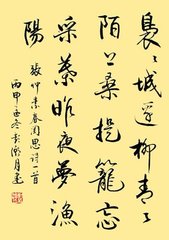 裊〻城邊柳青〻
陌上桑提籠忘
采葉昨夜夢漁
陽
張仲素春閨思詩一首
丙申冬月書